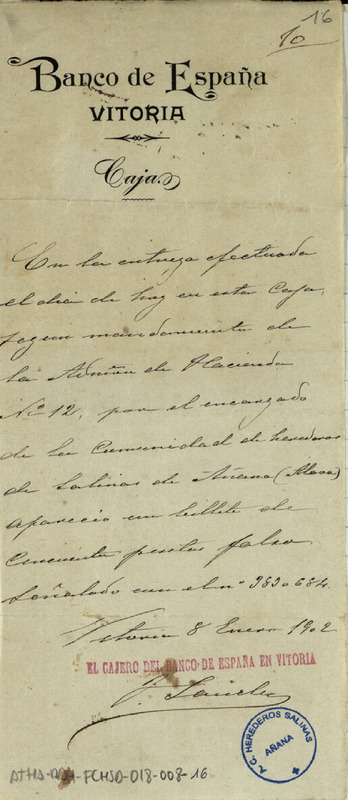 16
10
Banco de España
VITORIA
Caja.
En la entrega efectuada
el dia de hoy en esta Caja,
segun mandamiento de
la Admon de Hacienda
Nº 12, por el encargado
de la Comunidad de herederos
de Salinas de Añana (Alava)
aparecio un billete de
cincuenta pesetas falso
señalado con el nº 3830684.
Vitoria 8 Enero 1902
EL CAJERO DEL BANCO DE ESPAÑA EN VITORIA
A.C. HEREDEROS SALINAS
AÑANA
ATHA-DAH-FCHSA-018-008-16